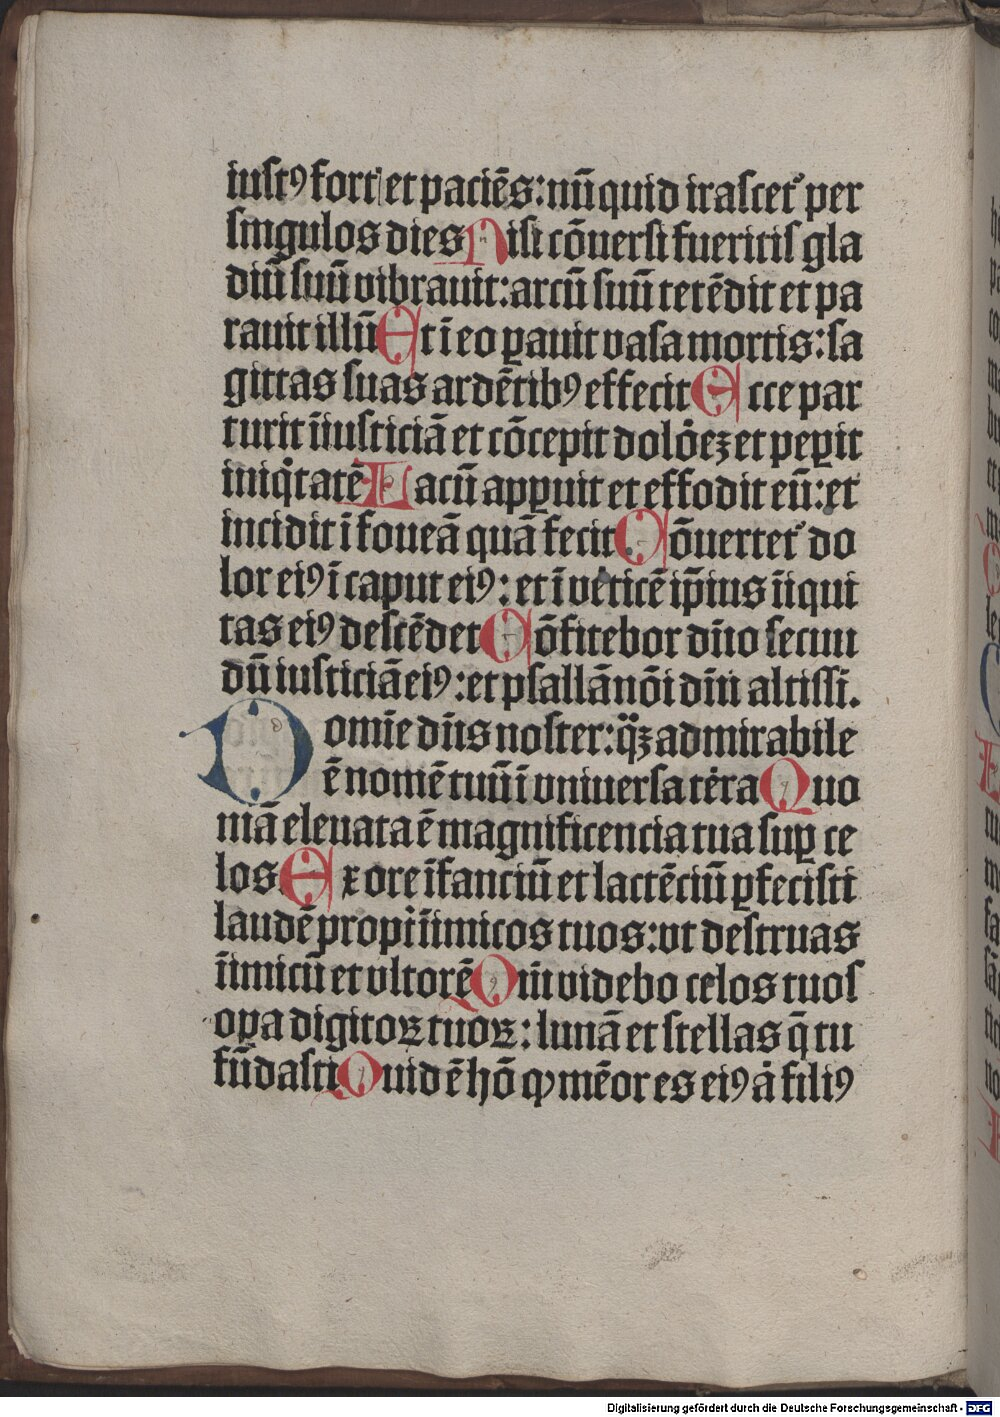 iustꝰ fort et paciēs: nūquid irascet᷑ per
singulos dies Nisi cōuersi fueritis gla
diū suū vibrauit: arcū suū tetēdit et pa
rauit illū Et ī eo ꝑauit vasa mortis: sa
gittas suas ardētibꝰ effecit Ecce par
turit īiusticiā et cōcepit dolōeꝫ et peꝑit
iniqͥtatē Lacū apꝑuit et effodit eū: et
incidit ī foueā quā fecit Cōuertet᷑ do
lor eiꝰ ī caput eiꝰ: et ī v̓ticē ip̄ius īiqui
tas eiꝰ descēdet Cōfitebor dn̄o secun
dū iusticiā eiꝰ: et psallā nōi dn̄i altissi.
Domīe dn̄s noster: qͣꝫ admirabile
ē nomē tuū ī vniuersa tėra Quo
niā eleuata ē magnificencia tua suꝑ ce
los Ex ore īfanciū et lactēciū ꝑfecisti
laudē propt̓ īimicos tuos: vt destruas
īimicū et vltorē Qm̄ videbo celos tuos
oꝑa digitoꝝ tuoꝝ: lunā et stellas q̄ tu
fūdasti Quid ē hō ꝙ mēor es eiꝰ aͧ filiꝰ
Digitalisierung gefördert durch die Deutsche Forschungsgemeinschaft - DFG